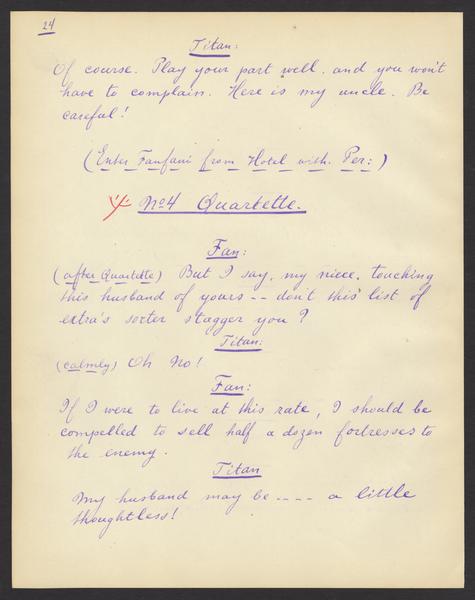 24
Titan:
Of course. Play your part well, and you won't
have to complain. Here is my uncle. Be
careful!
(Enter Fanfani from Hotel with Per:)
No4 Quartette.
Fan:
(after Quartette) But I say, my niece, touching
this husband of yours -- don't this list of
extra's sorter stagger you?
Titan:
(calmly) Oh No!
Fan:
If I were to live at this rate, I should be
compelled to sell half a dozen fortresses to
the enemy.
Titan
My husband may be ---- a little
thoughtless!